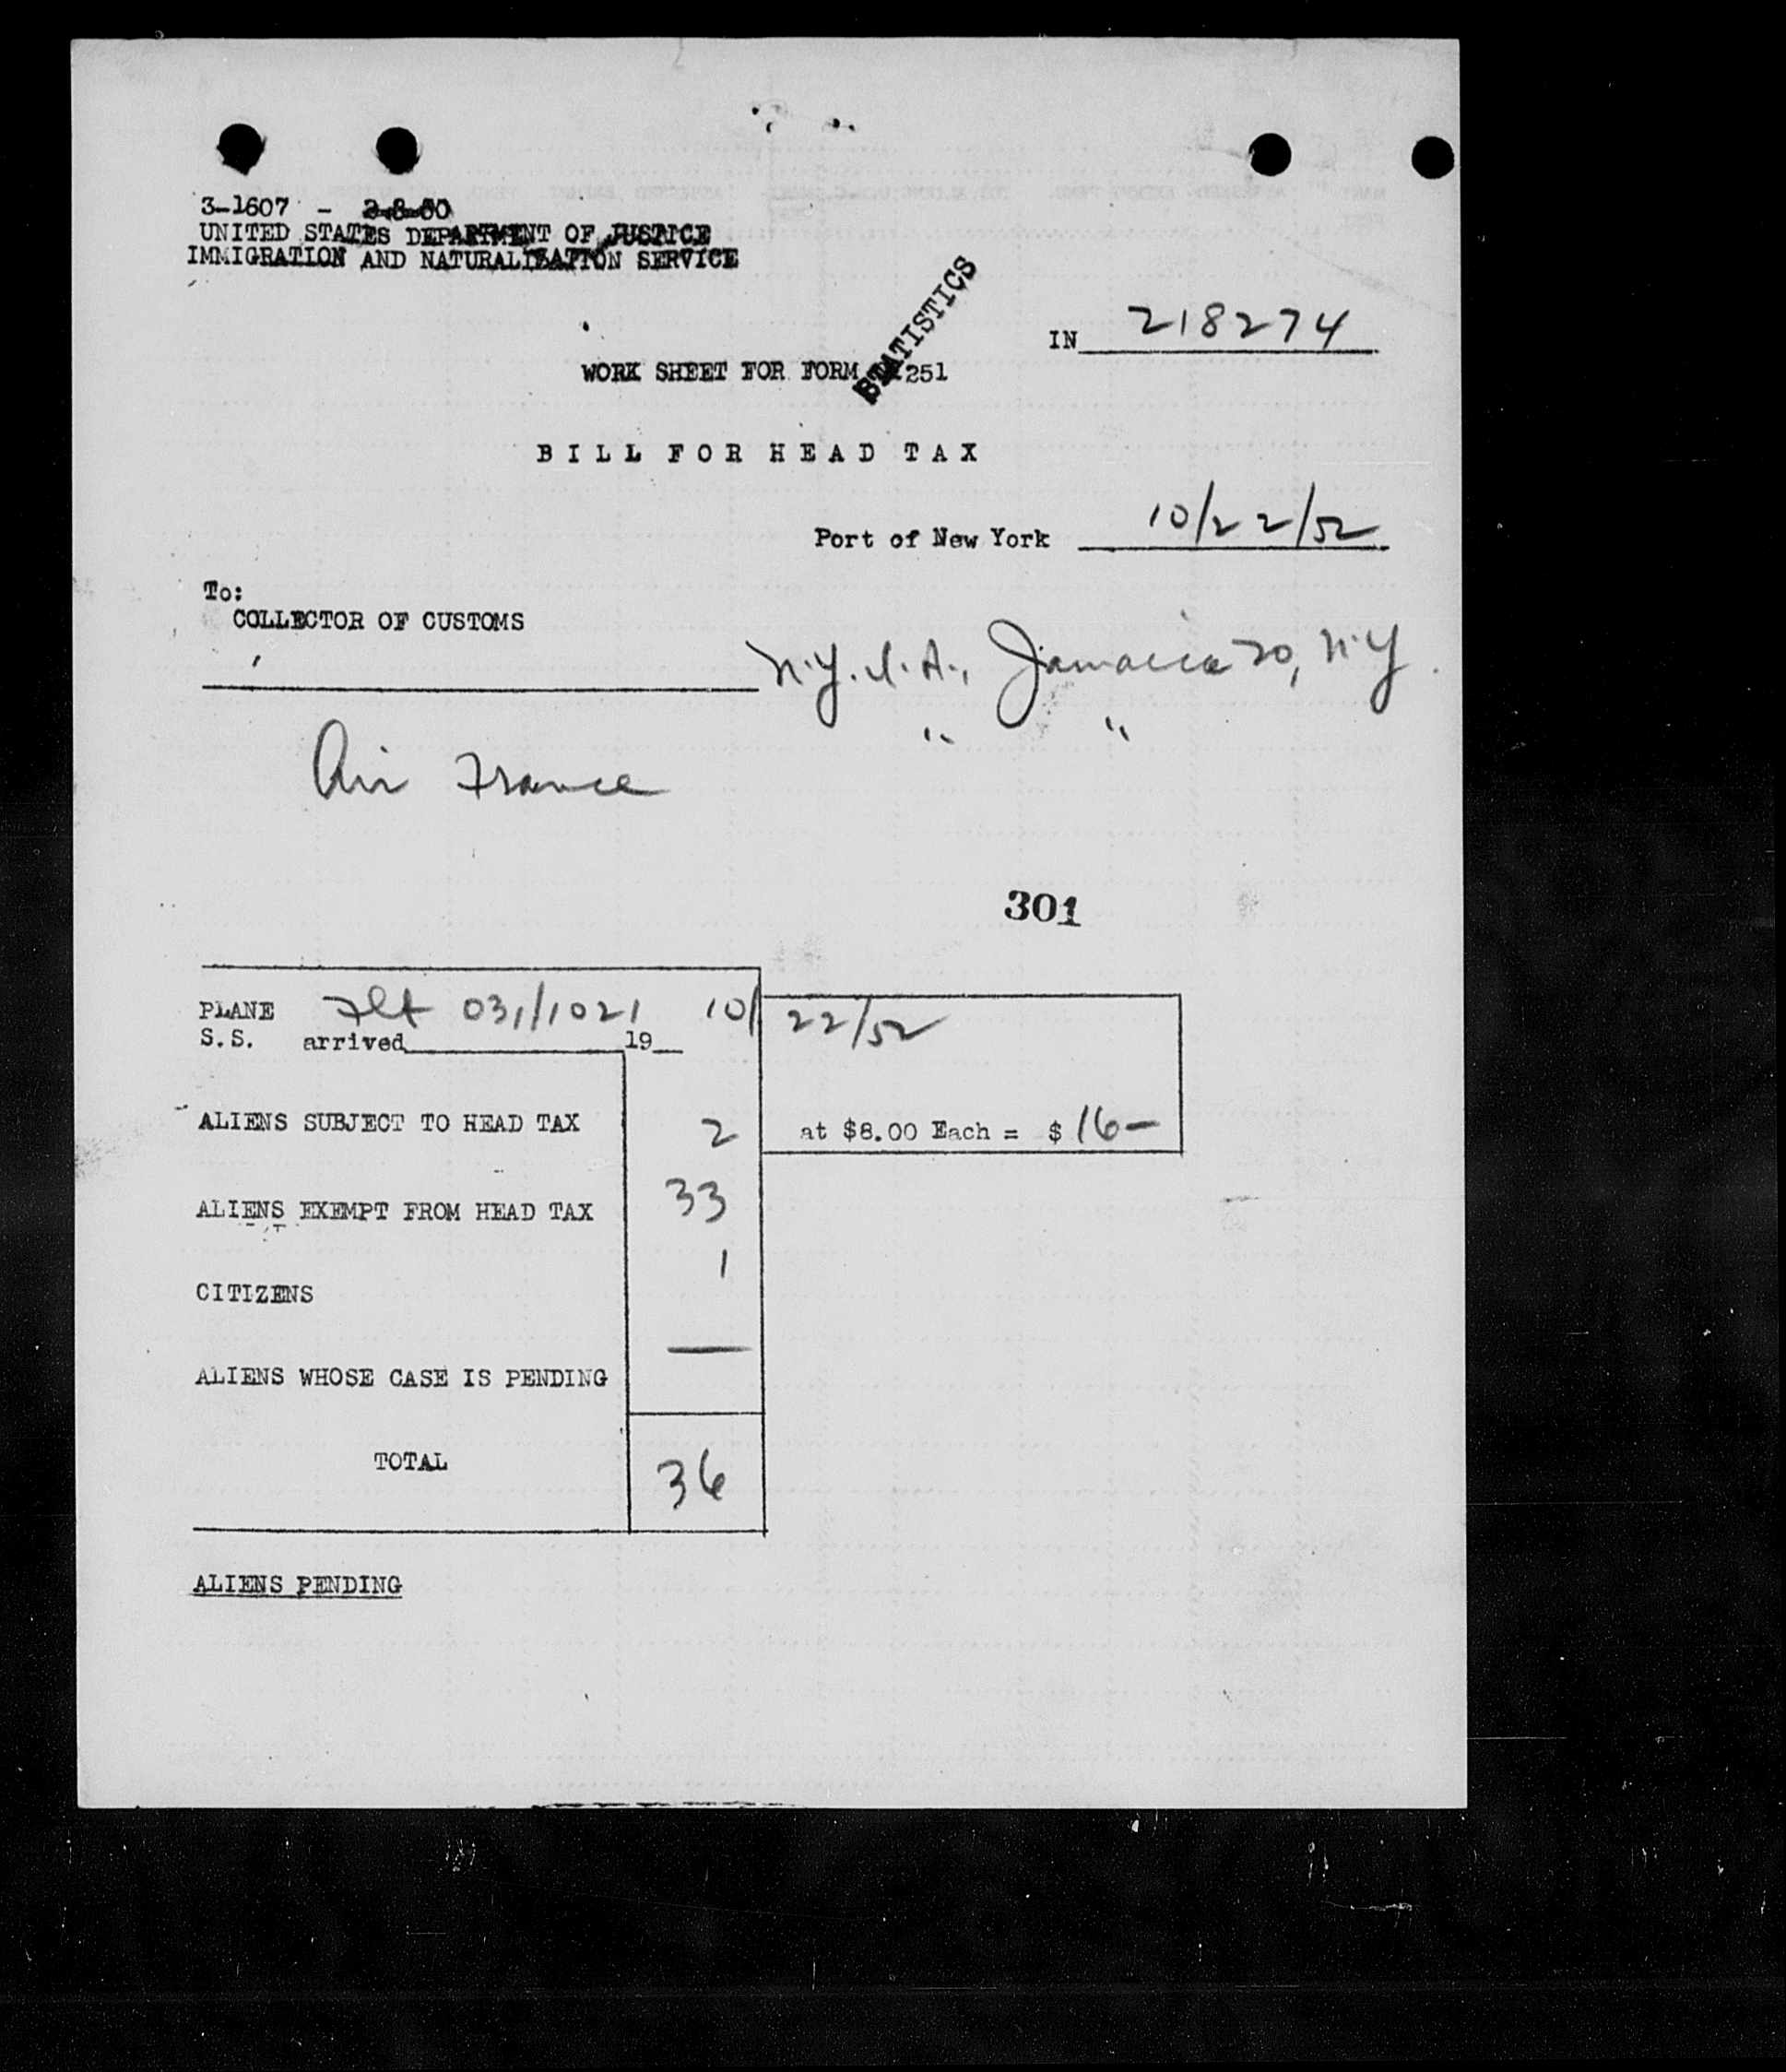 3-1607 - 2-8-50
UNITED STATES DEPARTMENT OF JUSTICE
IMMIGRATION AND NATURALIZATION SERVICE
STATISTICS
IN 218274
WORK SHEET FOR FORM 251
BILL FOR HEAD TAX
Port of New York 10/22/52
To:
COLLECTOR OF CUSTOMS
N.Y.I.A., Jamaica 20, N.Y.
" "
Air France
301
PLANE Flt 031/1021 10/22/52
S.S. arrived 19
ALIENS SUBJECT TO HEAD TAX 2 at $8.00 Each = $ 16—
ALIENS EXEMPT FROM HEAD TAX 33
CITIZENS 1
ALIENS WHOSE CASE IS PENDING —
TOTAL 36
ALIENS PENDING